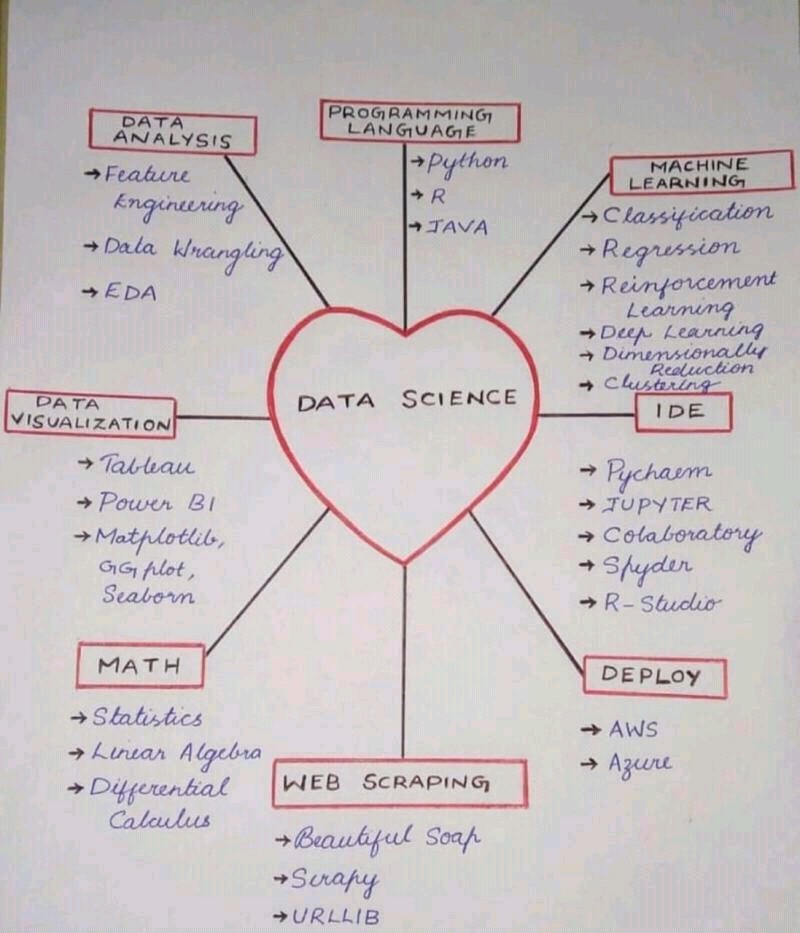 DATA
ANALYSIS
→ Feature
Engineering
→ Data Wrangling
→ EDA
PROGRAMMING
LANGUAGE
→ Python
→ R
→ JAVA
MACHINE
LEARNING
→ Classification
→ Regression
→ Reinforcement
Learning
→ Deep Learning
→ Dimensionally
Reduction
→ Clustering
DATA SCIENCE
DATA
VISUALIZATION
→ Tableau
→ Power BI
→ Matplotlib,
GG plot,
Seaborn
IDE
→ Pycharm
→ JUPYTER
→ Colaboratory
→ Spyder
→ R-Studio
MATH
→ Statistics
→ Linear Algebra
→ Differential
Calculus
WEB SCRAPING
→ Beautiful Soap
→ Scrapy
→ URLLIB
DEPLOY
→ AWS
→ Azure